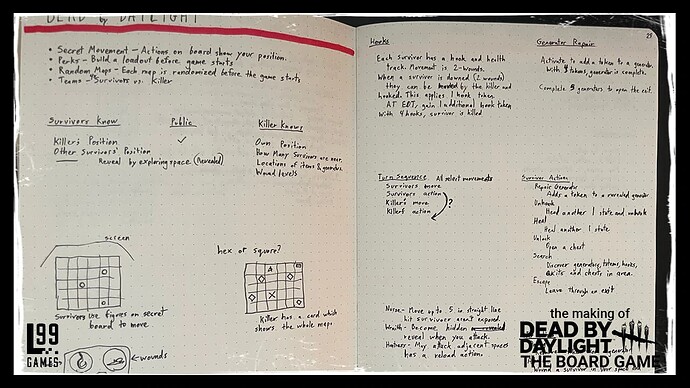 DEAD by DAYLIGHT
• Secret Movement - Actions on board show your position.
• Perks - Build a loadout before game starts
• Random Maps - Each map is randomized before the game starts
• Teams - Survivors vs. Killer
Survivors Know
Killer's Position
Other Survivors' Position
Reveal by exploring space (Revealed)
Public
✓
Killer Knows
Own Position
How Many Survivors are near.
Locations of items & generators.
Wound levels
screen
Survivors use figures on secret
board to move.
hex or square?
Killer has a card which
shows the whole map.
←wounds
L99
GAMES
29
Hooks
Each survivor has a hook and health
track. Movement is 2-wounds.
When a survivor is downed (2 wounds)
they can be by the killer and
hooked. This applies 1 hook token
AT EOT, gain 1 additional hook token
With 4 hooks, survivor is killed
Generator Repair
Activate to add a token to a generator.
With tokens, generator is complete.
Complete 5 generators to open the exit.
Turn Sequence All select movements
Survivors move
Survivors action
Killer's move
Killer's action
?
Survivor Actions
Repair Generator
Adds a token to a revealed generator.
Unhook
Heal another 1 state and unhook
Heal
Heal another 1 state.
Unlock
Open a chest
Search
Discover generators, totems, hooks,
exits and chests in area.
Escape
Leave through an exit
Nurse - Move up to 5 in straight line
but survivor aren't exposed.
Wraith - Become hidden
reveal when you attack.
May attack adjacent spaces
has a reload action.
the making of
DEAD BY
DAYLIGHT
THE BOARD GAME